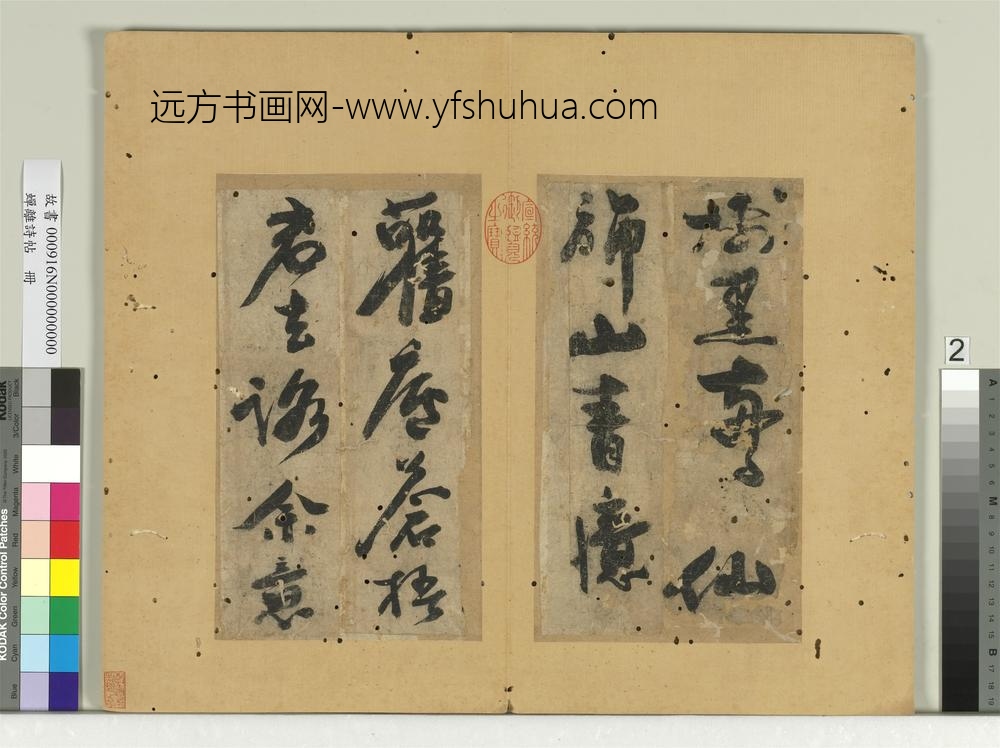 远方书画网-www.yfshuhua.com
里尋仙
山青憶
舊廬蒼梧
君去余意
宣統御覽之寶
故書 000916N000000000
詩帖 冊
2
Kodak
KODAK Color Control Patches
Blue Cyan Green Yellow Red Magenta White 3/Color Black
A 1 2 3 4 5 6 M 8 9 10 11 12 13 14 15 B 17 18 19